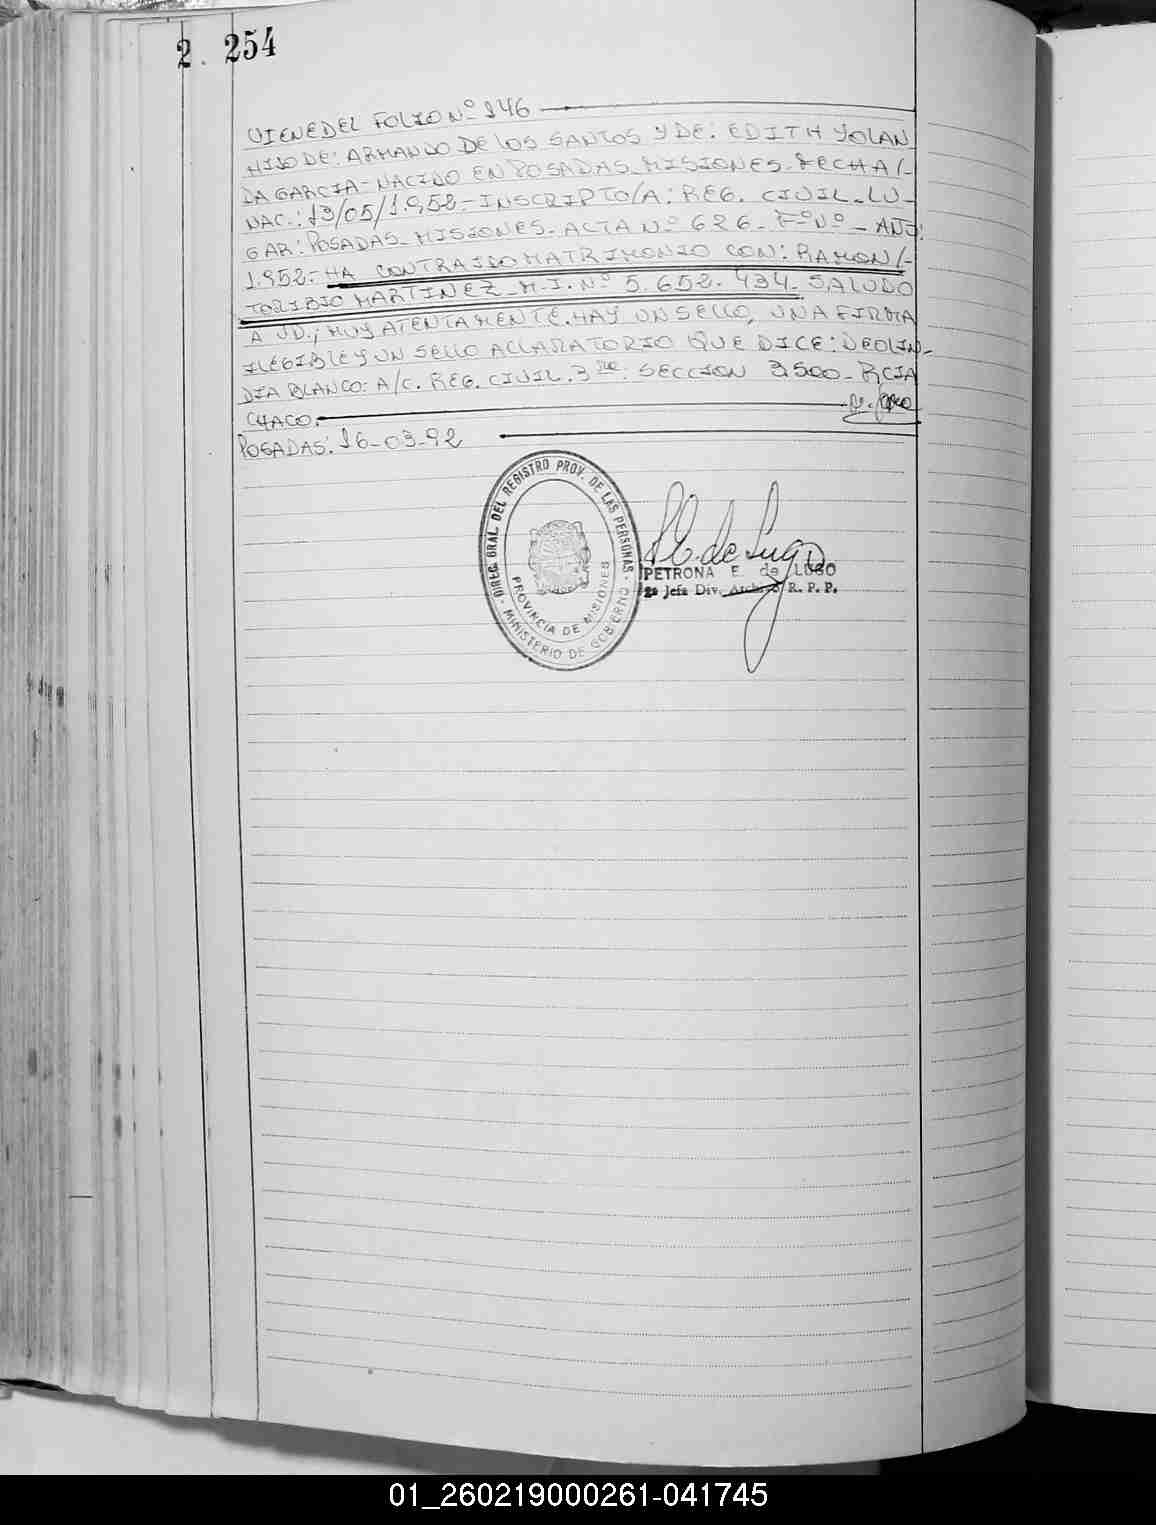 2. 254
VIENE DEL FOLIO Nº 146
HIJO DE: ARMANDO DE LOS SANTOS Y DE: EDITH YOLAN
DA GARCIA - NACIDO EN POSADAS - MISIONES - FECHA/-
NAC.: 13/05/1.952.- INSCRIPTO/A: REG. CIVIL - LU-
GAR: POSADAS - MISIONES - ACTA Nº 626 - Fº Nº - AÑO:
1.952.- HA CONTRAIDO MATRIMONIO CON: RAMON/-
TORIBIO MARTINEZ - M.I. Nº 5.652.434 - SALUDO
A UD., MUY ATENTAMENTE. HAY UN SELLO, UNA FIRMA
ILEGIBLE Y UN SELLO ACLARATORIO QUE DICE: DEOLIN-
DIA BLANCO: A/C. REG. CIVIL. 3ra. SECCION 3500 - RCIA
CHACO.
POSADAS: 16-03-92
DIREC. GRAL. DEL REGISTRO PROV. DE LAS PERSONAS
PROVINCIA DE MISIONES
MINISTERIO DE GOBIERNO
P.E. de Lugo
PETRONA E. de LUGO
2ª Jefa Div. Archivo R. P. P.
01_260219000261-041745